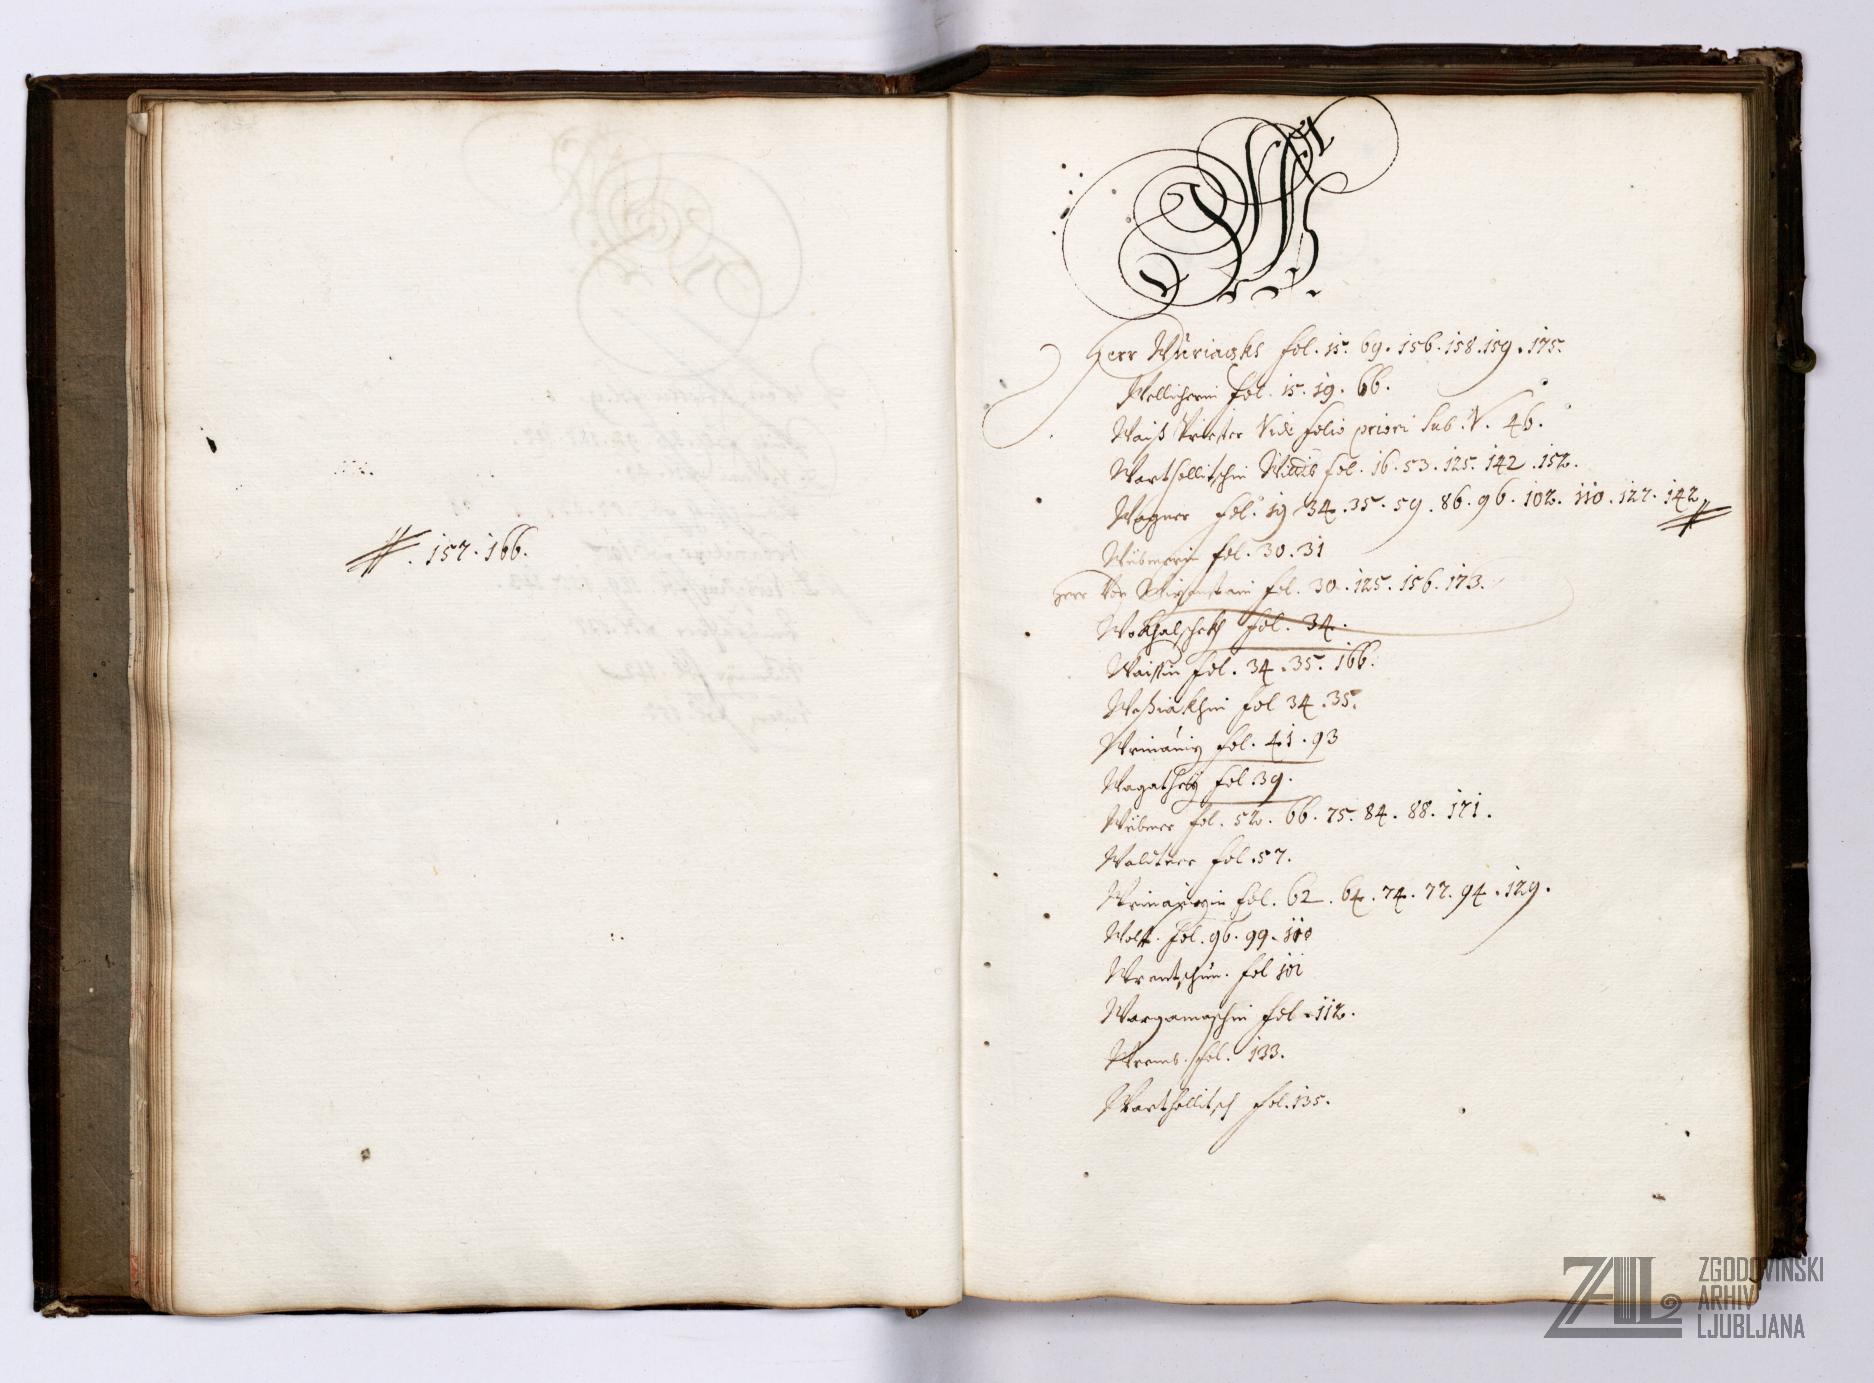 #. 157. 166.
W
Herr Wuriackh fol. 15. 69. 156. 158. 159. 175.
Wellicherin fol. 15. 19. 66.
Waiß Priester Vide folio priori sub. V. 46.
Warthollitschin Wittib fol. 16. 53. 125. 142. 152.
Wagner fol. 19. 34. 35. 59. 86. 96. 102. 110. 127. 142 #
fol. 30. 31
Herr Von fol. 30. 125. 156. 173.
fol. 34.
Waissin fol. 34. 35. 166.
Waßiakhin fol 34. 35.
fol. 41. 93
fol. 39.
Wibmer fol. 52. 66. 75. 84. 88. 171.
Waldtner fol. 57.
fol. 62. 64. 74. 77. 94. 129.
Wolff. fol. 96. 99. 100
Wrentschur. fol 101
Wargamaschin fol. 112.
Wrems. fol. 133.
Warthollitsch fol. 135.
ZAL
ZGODOVINSKI
ARHIV
LJUBLJANA